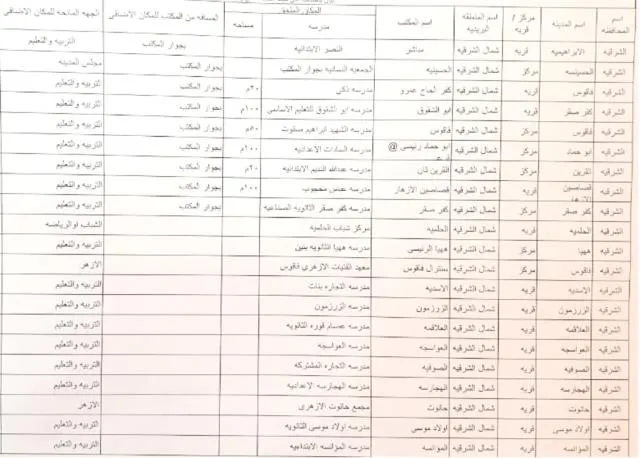 المكان الملحق
اسم المحافظه | اسم المدينه | مركز / قريه | اسم المنطقه البريديه | اسم المكتب | مدرسه | مساحه | المسافه من المكتب للمكان الاضافى | الجهه المانحه للمكان الاضافى
الشرقيه | الابراهيميه | قريه | شمال الشرقيه | مباشر | النصر الابتدائيه | بجوار المكتب | التربيه والتعليم
الشرقيه | الحسينيه | مركز | شمال الشرقيه | الحسينيه | الجمعيه النسائيه بجوار المكتب | بجوار المكتب | مجلس المدينه
الشرقيه | فاقوس | قريه | شمال الشرقيه | كفر الحاج عمرو | مدرسه ذكى | ٢٠م | بجوار المكتب | التربيه والتعليم
الشرقيه | كفر صقر | قريه | شمال الشرقيه | ابو الشقوق | مدرسه ابو الشقوق للتعليم الاساسى | ١٠٠م | بجوار المكتب | التربيه والتعليم
الشرقيه | فاقوس | مركز | شمال الشرقيه | فاقوس | مدرسه الشهيد ابراهيم | ٥٠م | بجوار المكتب | التربيه والتعليم
الشرقيه | ابو حماد | مركز | شمال الشرقيه | ابو حماد رئيسى @ | مدرسه السادات الاعداديه | ٢٠٠م | بجوار المكتب | التربيه والتعليم
الشرقيه | القرين | مركز | شمال الشرقيه | القرين ثان | مدرسه عبدالله النديم الابتدائيه | ٢٠م | بجوار المكتب | التربيه والتعليم
الشرقيه | قصاصين الازهار | قريه | شمال الشرقيه | قصاصين الازهار | مدرسه عباس محجوب | ١٠٠م | بجوار المكتب | التربيه والتعليم
الشرقيه | كفر صقر | مركز | شمال الشرقيه | كفر صقر | مدرسه كفر صقر الثانويه الصناعيه | بجوار المكتب | التربيه والتعليم
الشرقيه | الحلميه | قريه | شمال الشرقيه | الحلميه | مركز شباب الحلميه | الشباب والرياضه
الشرقيه | ههيا | مركز | شمال الشرقيه | ههيا الرئيسى | مدرسه ههيا الثانويه بنين | التربيه والتعليم
الشرقيه | فاقوس | مركز | شمال الشرقيه | سنترال فاقوس | معهد الفتيات الازهرى فاقوس | الازهر
الشرقيه | الاسديه | قريه | شمال الشرقيه | الاسديه | مدرسه التجاره بنات | التربيه والتعليم
الشرقيه | الزرزمون | قريه | شمال الشرقيه | الزرزمون | مدرسه الزرزمون | التربيه والتعليم
الشرقيه | العلاقمه | قريه | شمال الشرقيه | العلاقمه | مدرسه عصام قوره الثانويه | التربيه والتعليم
الشرقيه | العواسجه | قريه | شمال الشرقيه | العواسجه | مدرسه العواسجه | التربيه والتعليم
الشرقيه | الصوفيه | قريه | شمال الشرقيه | الصوفيه | مدرسه التجاره المشتركه | التربيه والتعليم
الشرقيه | الهجارسه | قريه | شمال الشرقيه | الهجارسه | مدرسه الهجارسه الاعداديه | التربيه والتعليم
الشرقيه | حانوت | قريه | شمال الشرقيه | حانوت | مجمع حانوت الازهرى | الازهر
الشرقيه | اولاد موسى | قريه | شمال الشرقيه | اولاد موسى | مدرسه اولاد موسى الثانويه | التربيه والتعليم
الشرقيه | المؤانسه | قريه | شمال الشرقيه | المؤانسه | مدرسه المؤانسه الابتدائيه | التربيه والتعليم